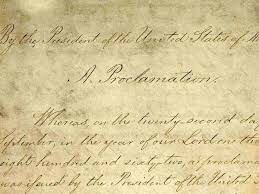 By the President of the United States of
A Proclamation.
Whereas, on the twenty second day
September, in the year of our Lord one
eight hundred and sixty two, a proclama
was issued by the President of the United